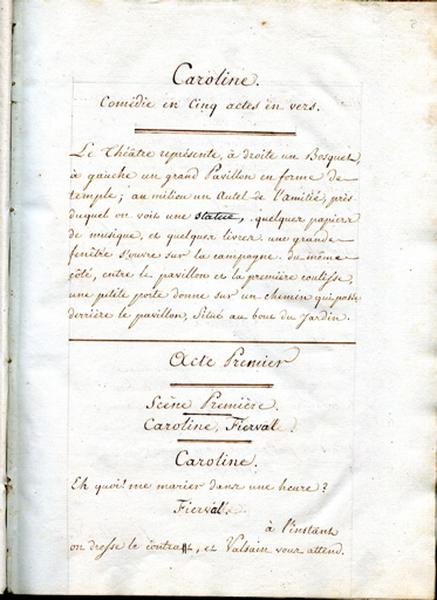 Caroline.
Comédie en Cinq actes en vers.
Le Théâtre représente, à droite un Bosquet,
à gauche un grand Pavillon en forme de
temple; au milieu un Autel de l'amitié, près
duquel on voit une statue, quelques papiers
de musique, et quelques livres. une grande
fenêtre s'ouvre sur la campagne. du même
côté, entre le pavillon et la première coulisse,
une petite porte donne sur un chemin qui passe
derrière le pavillon, Situé au bout du Jardin.
Acte Premier
Scène Première.
Caroline, Fierval.
Caroline.
Eh quoi! me marier dans une heure?
Fierval.
à l'instant
on dresse le contrat, et Valsain vous attend.